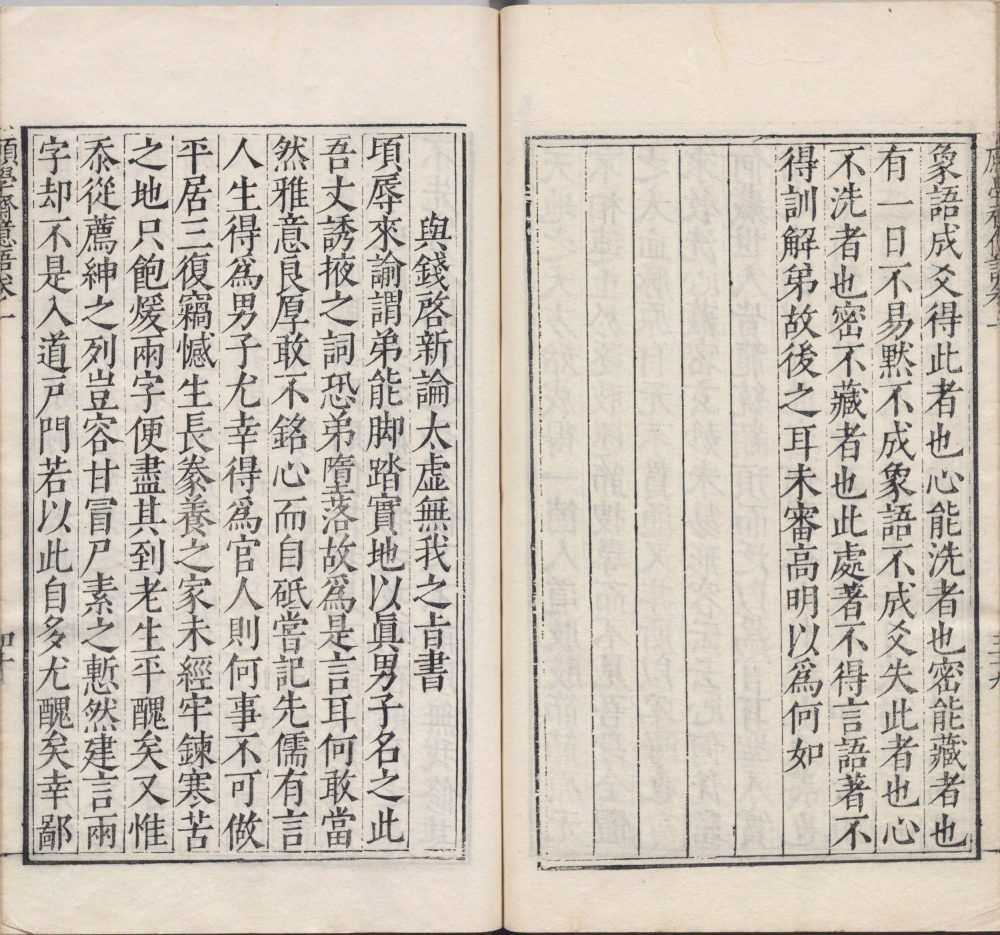 象語成爻得此者也心能洗者也密能藏者也
有一日不易默不成象語不成爻失此者也心
不洗者也密不藏者也此處著不得言語著不
得訓解弟故後之耳未審高明以爲何如
與錢啓新論太虛無我之旨書
頃辱來諭謂弟能脚踏實地以眞男子名之此
吾丈誘掖之詞恐弟墮落故爲是言耳何敢當
然雅意良厚敢不銘心而自砥嘗記先儒有言
人生得爲男子尤幸得爲官人則何事不可做
平居三復竊憾生長豢養之家未經牢鍊寒苦
之地只飽煖兩字便盡其到老生平醜矣又惟
忝從薦紳之列豈容甘冒尸素之慙然建言兩
字却不是入道戸門若以此自多尤醜矣幸鄙
學齋憶語卷一